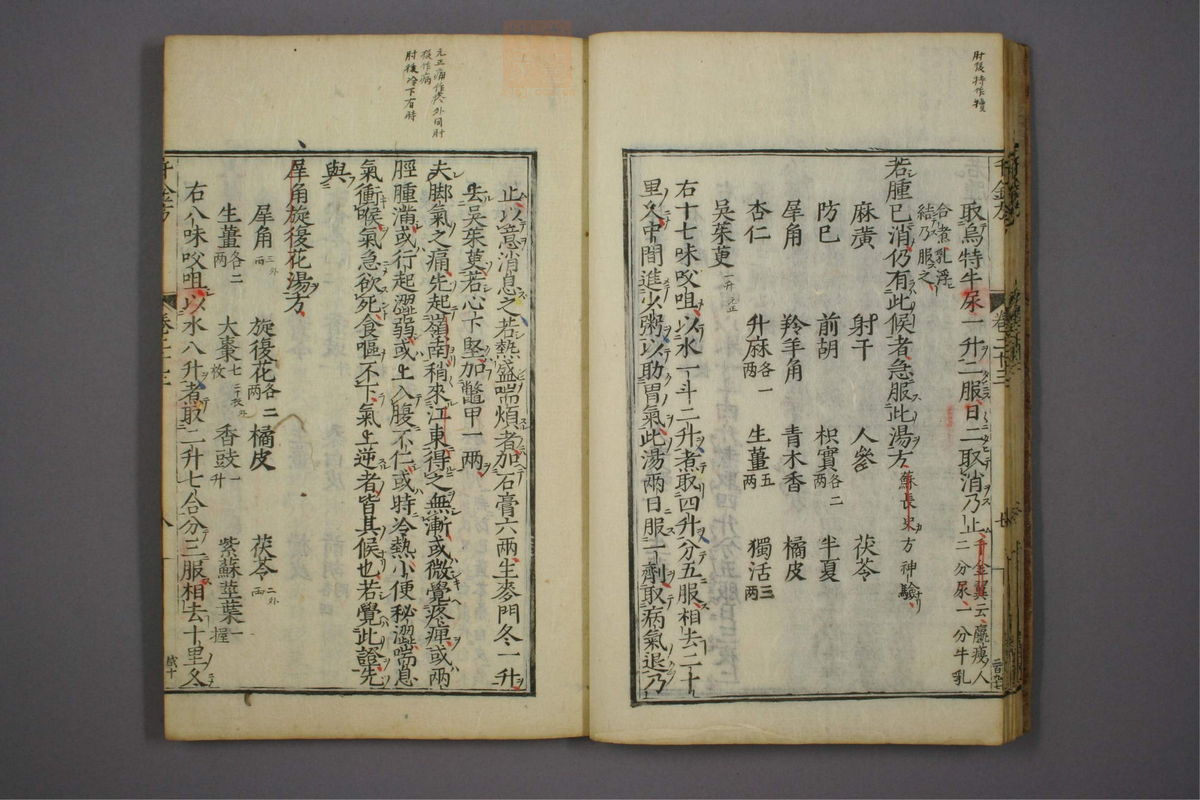 取烏特牛尿一升二服日二取消乃止千金翼云羸瘦人二分尿一分牛乳
合煮乳浮結乃服之
若腫已消仍有此候者急服此湯方蘇長史方神驗
麻黄 射干 人參 茯苓
防巳 前胡 枳實各二兩 半夏
犀角 羚羊角 青木香 橘皮
杏仁 升麻各一兩 生薑五兩 獨活三兩
吳茱萸一升
右十七味㕮咀以水一斗二升煮取四升分五服相去二十
里久中間進少粥以助胃氣此湯兩日服一劑取病氣退乃
止以意消息之若熱盛喘煩者加石膏六兩生麥門冬一升
去吳茱萸若心下堅加鼈甲一兩
夫脚氣之痛先起嶺南稍來江東得之無漸或微覺疼痺或兩
脛腫滿或行起澀弱或上入腹不仁或時冷熱小便秘澀喘息
氣衝喉氣急欲死食嘔不下氣上逆者皆其候也若覺此證先
與
犀角旋復花湯方
犀角 旋復花各二兩 橘皮 茯苓
生薑各二兩 大棗七枚 香豉一升 紫蘇莖葉一握
右八味㕮咀以水八升煮取二升七合分三服相去十里久